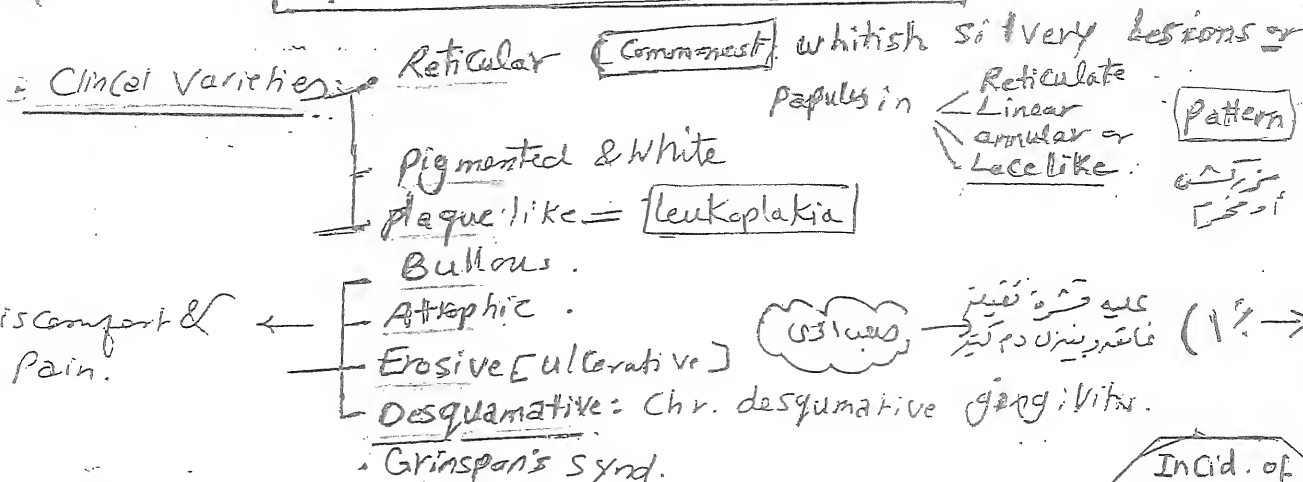 Clincel Varieties: Reticular [Commonest] whitish silvery Lesions or
papules in Reticulate
Linear
annular or
Lace like.
Pattern
مزركش
أو مخرم
Pigmented & White
plaque like = leukoplakia
Bullous.
iscomfort & Pain.
Atrophic.
Erosive [ulcerative]
عليه قشرة
(١٪ →
Desquamative: Chr. desqumative gingivitis.
Grinspan's synd.
Incid. of